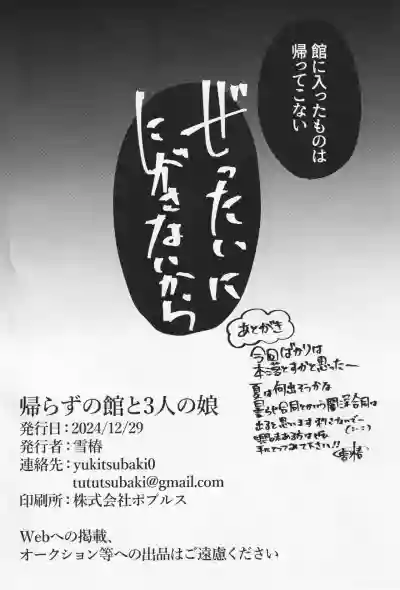 館に入ったものは
帰ってこない
ぜったいに
にがさないから
あとがき
今回ばかりは
本落とすかと思ったー
夏は何出そうかな
帰らずの館と3人の娘
発行日:2024/12/29
発行者:雪椿
連絡先:yukitsubaki0
tututsubaki@gmail.com
印刷所:株式会社ポプルス
Webへの掲載、
オークション等への出品はご遠慮ください